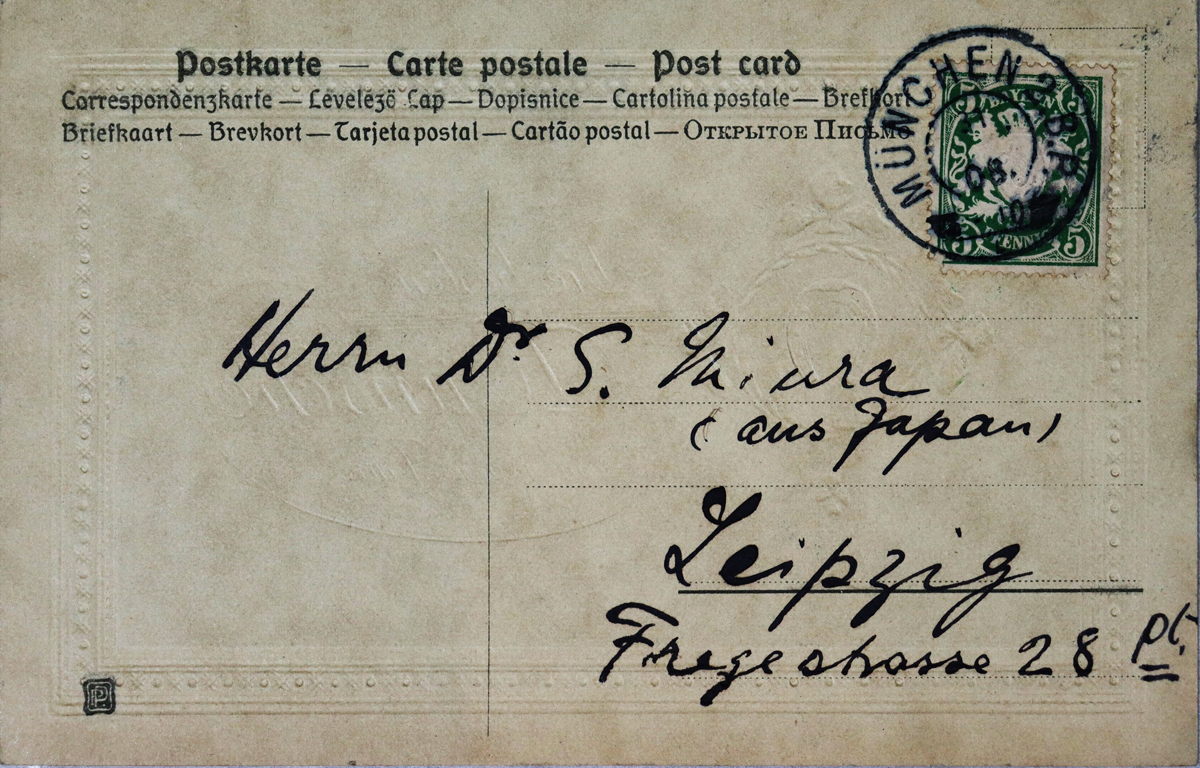 Postkarte — Carte postale — Post card
Correspondenzkarte — Levelézö Lap — Dopisnice — Cartolina postale — Brefkort
Briefkaart — Brevkort — Tarjeta postal — Cartão postal — Открытое Письмо
MÜNCHEN 2 B.P.
08.
BAYERN
5 PFENNIG 5
Herrn Dr S. Miura
(aus Japan)
Leipzig
Fregestrasse 28 pt.
P